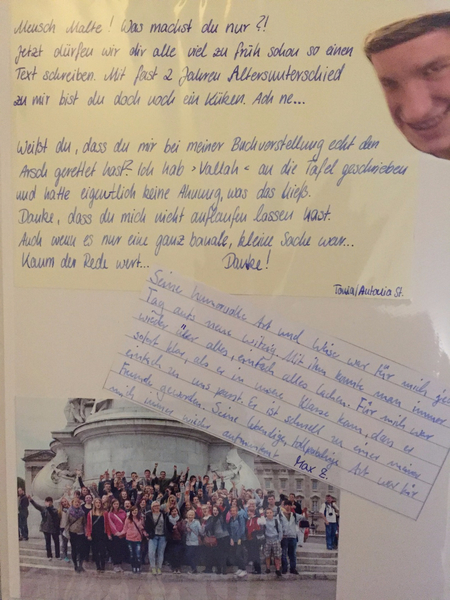 Mensch Malte! Was machst du nur?!
Jetzt dürfen wir dir alle viel zu früh schon so einen
Text schreiben. Mit fast 2 Jahren Altersunterschied
zu mir bist du doch noch ein Küken. Ach ne...
Weißt du, dass du mir bei meiner Buchvorstellung echt den
Arsch gerettet hast? Ich hab >Vallah< an die Tafel geschrieben
und hatte eigentlich keine Ahnung, was das hieß.
Danke, dass du mich nicht auflaufen lassen hast.
Auch wenn es nur eine ganz banale, kleine Sache war...
Kaum der Rede wert... Danke!
Antonia St.
Seine humorvolle Art und Weise war für mich
Tag aufs neue witzig. Mit ihm konnte man immer
wieder über alles, einfach alles lachen. Für mich war
sofort klar, als er in unsere Klasse kam, dass er
einfach zu uns passt. Er ist schnell zu einer meiner
Freunde geworden. Seine Art war für
mich immer wieder
Max Z.